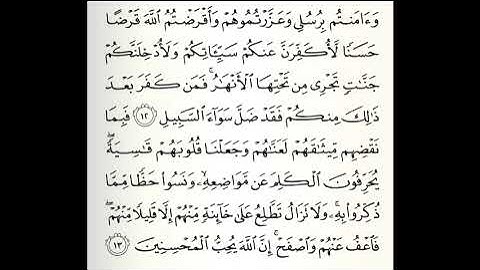 وَءَامَنتُم بِرُسُلِي وَعَزَّرْتُمُوهُمْ وَأَقْرَضْتُمُ اللَّهَ قَرْضًا
حَسَنًا لَّأُكَفِّرَنَّ عَنكُمْ سَيِّـَٔاتِكُمْ وَلَأُدْخِلَنَّكُمْ
جَنَّٰتٍ تَجْرِى مِن تَحْتِهَا الْأَنْهَٰرُ ۚ فَمَن كَفَرَ بَعْدَ
ذَٰلِكَ مِنكُمْ فَقَدْ ضَلَّ سَوَآءَ السَّبِيلِ ١٢ فَبِمَا
نَقْضِهِم مِّيثَٰقَهُمْ لَعَنَّٰهُمْ وَجَعَلْنَا قُلُوبَهُمْ قَٰسِيَةً ۖ
يُحَرِّفُونَ الْكَلِمَ عَن مَّوَاضِعِهِۦ ۙ وَنَسُوا۟ حَظًّا مِّمَّا
ذُكِّرُوا۟ بِهِۦ ۚ وَلَا تَزَالُ تَطَّلِعُ عَلَىٰ خَآئِنَةٍ مِّنْهُمْ إِلَّا قَلِيلًا مِّنْهُمْ ۖ
فَاعْفُ عَنْهُمْ وَاصْفَحْ ۚ إِنَّ اللَّهَ يُحِبُّ الْمُحْسِنِينَ ١٣